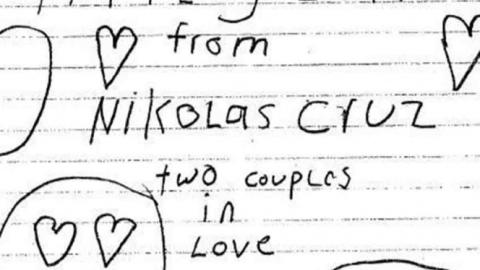 from
NIKOLAS CRUZ
two couples
in
LOVE